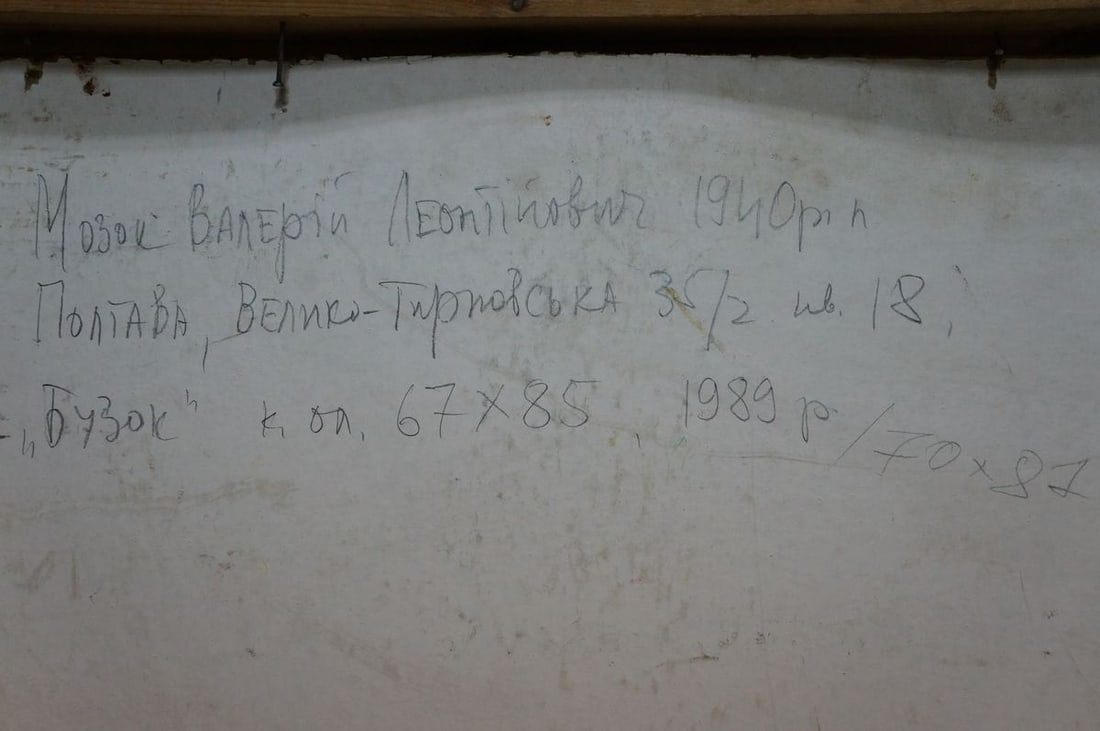 Мозок Валерій Леонтійович 1940 р н
Полтава, Велико-Тирновська 35/2 кв. 18;
„Бузок" к, оп, 67х85, 1989 р. /70х87